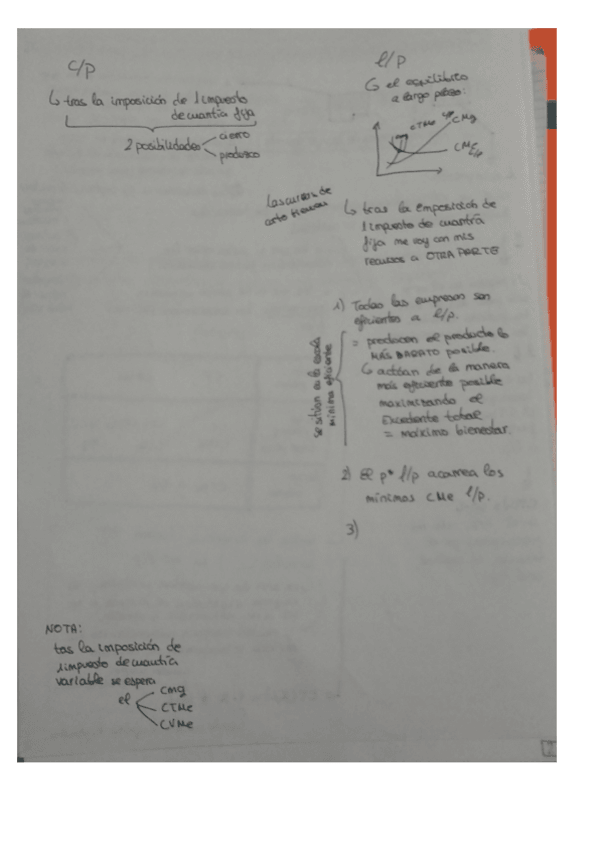 C/P
↳ tras la imposición de 1 impuesto
de cuantía fija
2 posibilidades
cierro
produzco
l/p
↳ el equilibrio
a largo plazo:
CTMe
CMg
CME l/p
Las curvas de
↳ tras la imposición de
1 impuesto de cuantía
fija me voy con mis
recursos a OTRA PARTE
1) Todas las empresas son
eficientes a l/p.
= producen el producto lo
MÁS BARATO posible.
↳ actúan de la manera
más eficiente posible
maximizando el
Excedente total
= máximo bienestar.
se sitúan en la escala
mínima eficiente
2) El p* l/p acarrea los
mínimos CMe l/p.
3)
NOTA:
tas la imposición de
1 impuesto de cuantía
variable se espera
el
Cmg
CTMe
CVMe